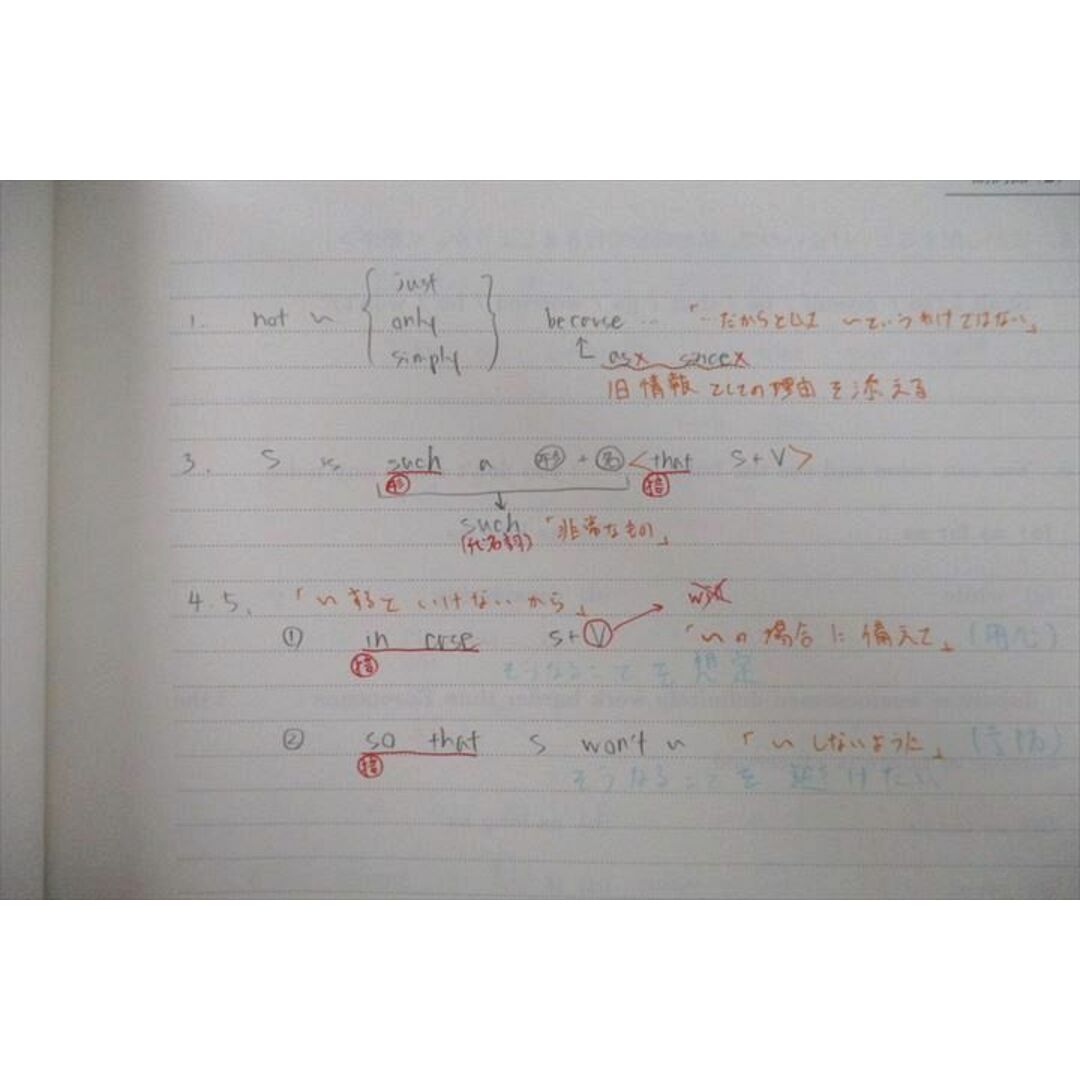 just
1. not 〜 only because … 「…だからといって 〜というわけではない」
simply
↑ as× since×
旧情報としての理由を添える
3. S is such a 形 + 名 <that S+V>
形 接
such 「非常なもの」
(代名詞)
4.5. 「〜するといけないから」
① in case S+V 「〜の場合に備えて」(用心)
接 そうなることを想定
② so that S won't 〜 「〜しないように」(予防)
接 そうなることを避けたい